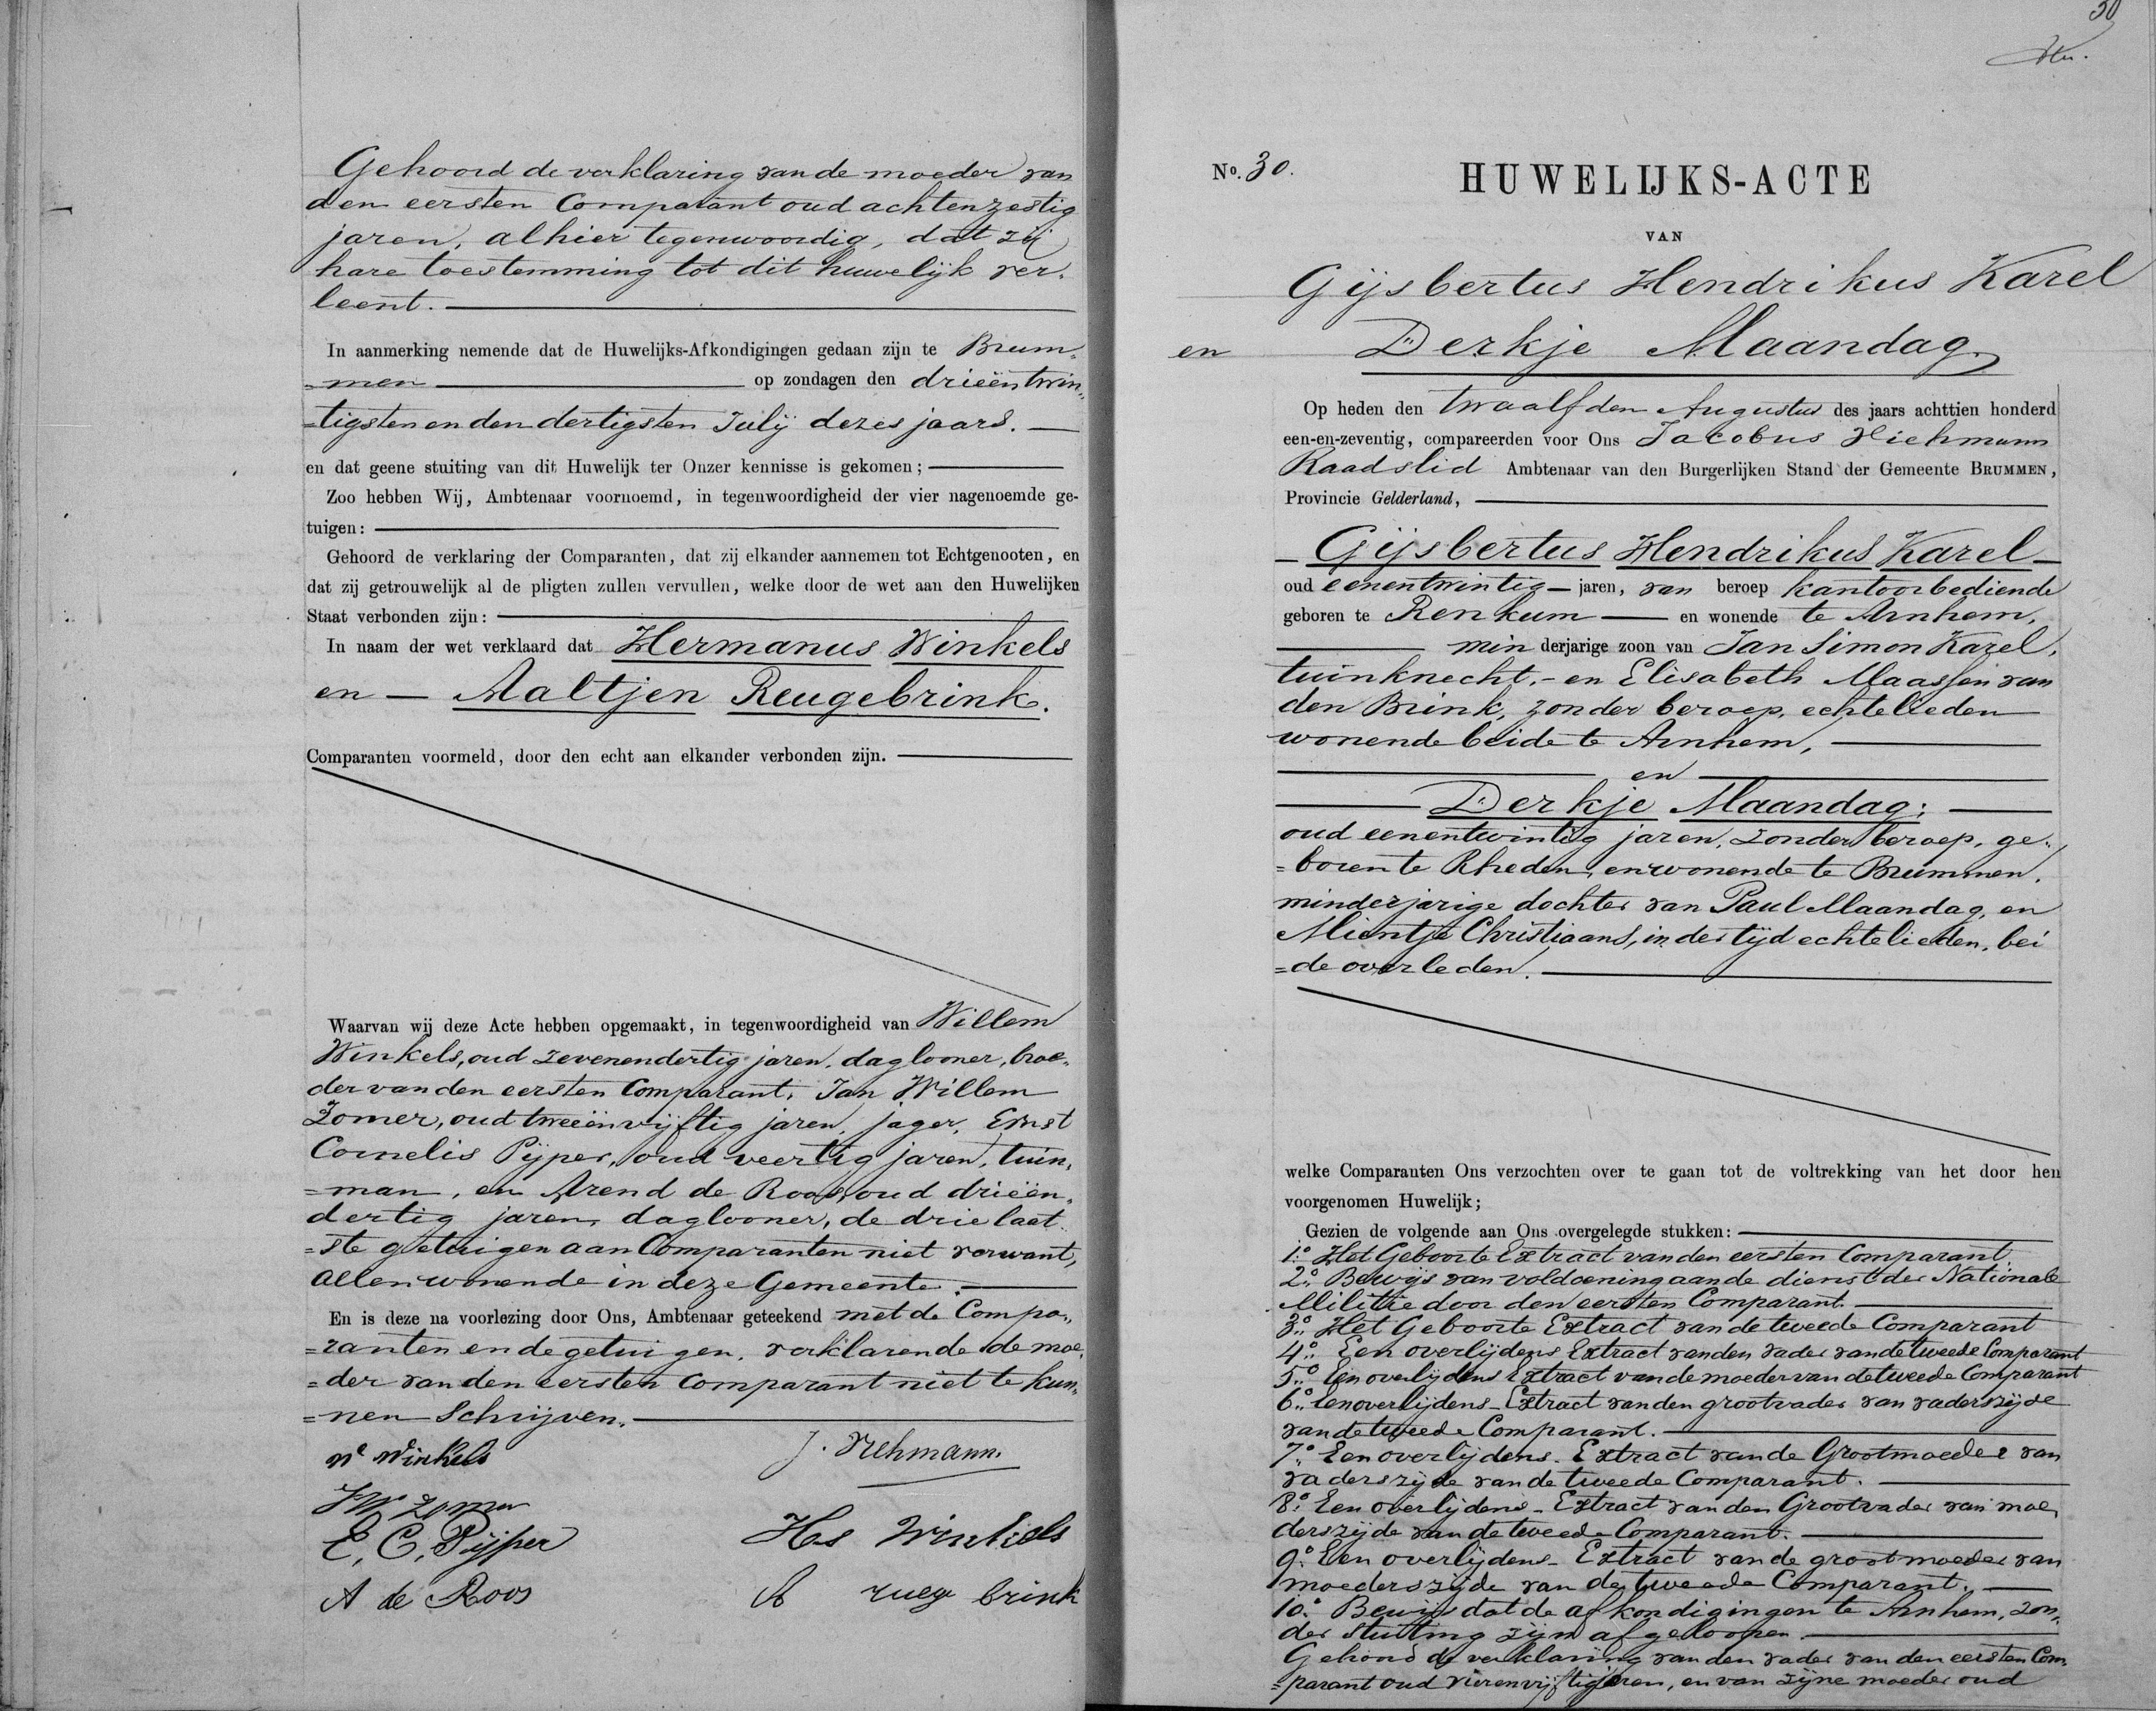 Gehoord de verklaring van de moeder van
den eersten Comparant oud achtenzestig
jaren, alhier tegenwoordig, dat zij
hare toestemming tot dit huwelijk ver„
leent.
In aanmerking nemende dat de Huwelijks-Afkondigingen gedaan zijn te Brum„
=men op zondagen den drieëntwin„
=tigsten en den dertigsten Julij dezes jaars.
en dat geene stuiting van dit Huwelijk ter Onzer kennisse is gekomen;
Zoo hebben Wij, Ambtenaar voornoemd, in tegenwoordigheid der vier nagenoemde ge-
tuigen:
Gehoord de verklaring der Comparanten, dat zij elkander aannemen tot Echtgenooten, en
dat zij getrouwelijk al de pligten zullen vervullen, welke door de wet aan den Huwelijken
Staat verbonden zijn:
In naam der wet verklaard dat Hermanus Winkels
en — Aaltjen Reugebrink.
Comparanten voormeld, door den echt aan elkander verbonden zijn.
Waarvan wij deze Acte hebben opgemaakt, in tegenwoordigheid van Willem
Winkels, oud zevenendertig jaren, daglooner, broe„
der van den eersten Comparant, Jan Willem
Zomer, oud tweeënvijftig jaren, jager, Ernst
Cornelis Pijper, oud veertig jaren, tuin„
=man, en Arend de Roos, oud drieën„
dertig jaren, daglooner, de drie laat„
=ste getuigen aan Comparanten niet verwant,
allen wonende in deze Gemeente.
En is deze na voorlezing door Ons, Ambtenaar geteekend met de Compa„
=ranten en de getuigen, verklarende de moe„
=der van den eersten Comparant niet te kun„
=nen Schrijven.
W Winkels J. Niehmann.
JW Zomer
E. C. Pijper Hs Winkels
A de Roos A rueg brink
30
No. 30. HUWELIJKS-ACTE
VAN
Gijsbertus Hendrikus Karel
en Derkje Maandag
Op heden den twaalfden Augustus des jaars achttien honderd
een-en-zeventig, compareerden voor Ons Jacobus Niehmann
Raadslid Ambtenaar van den Burgerlijken Stand der Gemeente BRUMMEN,
Provincie Gelderland,
— Gijsbertus Hendrikus Karel —
oud eenentwintig — jaren, van beroep kantoorbediende
geboren te Renkum — en wonende te Arnhem,
minderjarige zoon van Jan Simon Karel,
tuinknecht, - en Elisabeth Maassen van
den Brink, zonder beroep, echtelieden
wonende beide te Arnhem,
en
Derkje Maandag;
oud eenentwintig jaren, zonder beroep, ge„
=boren te Rheden, en wonende te Brummen,
minderjarige dochter van Paul Maandag, en
Mientje Christiaans, in der tijd echtelieden, bei
=de overleden.
welke Comparanten Ons verzochten over te gaan tot de voltrekking van het door hen
voorgenomen Huwelijk;
Gezien de volgende aan Ons overgelegde stukken:
1o. Het Geboorte Extract van den eersten Comparant
2o. Bewijs van voldoening aan de dienst der Nationale
Militie door den eersten Comparant.
3o. Het Geboorte Extract van de tweede Comparant
4o. Een overlijdens Extract van den vader van de tweede Comparant
5o. Een overlijdens Extract van de moeder van de tweede Comparant
6o. Een overlijdens-Extract van den grootvader van vaderszijde
van de tweede Comparant.
7o. Een overlijdens-Extract van de Grootmoeder van
vaderszijde van de tweede Comparant.
8o. Een overlijdens-Extract van den Grootvader van moe„
derszijde van de tweede Comparant.
9o. Een overlijdens-Extract van de grootmoeder van
moederszijde van de tweede Comparant.
10o. Bewijs dat de afkondigingen te Arnhem, zon„
der stuiting zijn afgeloopen.
Gehoord de verklaring van den vader van den eersten Com„
=parant oud vierenvijftig jaren, en van zijne moeder oud